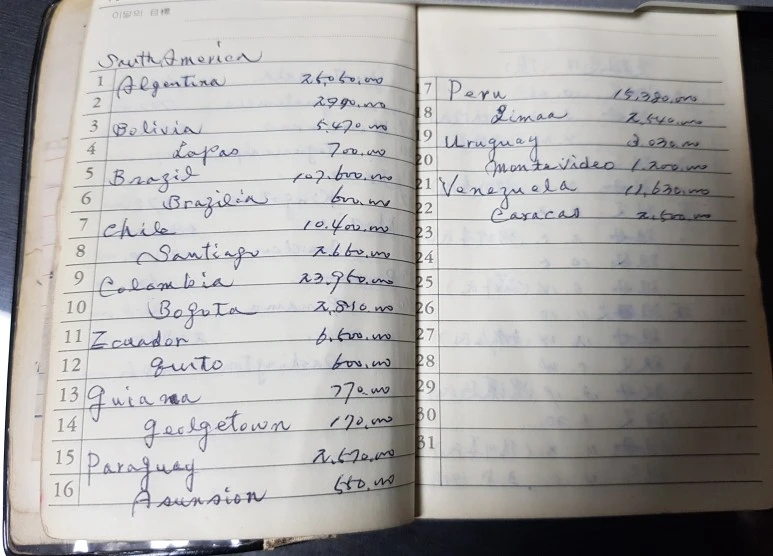 이달의 目標
South America
1 Algentina 25,050,000
2 2,990,000
3 Bolivia 5,470,000
4 Lapas 700,000
5 Brazil 107,600,000
6 Brazilia 600,000
7 Chile 10,400,000
8 Santiago 2,660,000
9 Colombia 23,950,000
10 Bogota 2,810,000
11 Ecuador 6,500,000
12 quito 600,000
13 guiana 770,000
14 geolgetown 170,000
15 Paraguay 2,570,000
16 Asunsion 550,000
17 Peru 15,380,000
18 Limaa 2,540,000
19 Uruguay 3,030,000
20 Montevideo 1,200,000
21 Venezuela 11,630,000
22 Caracas 2,500,000
23
24
25
26
27
28
29
30
31